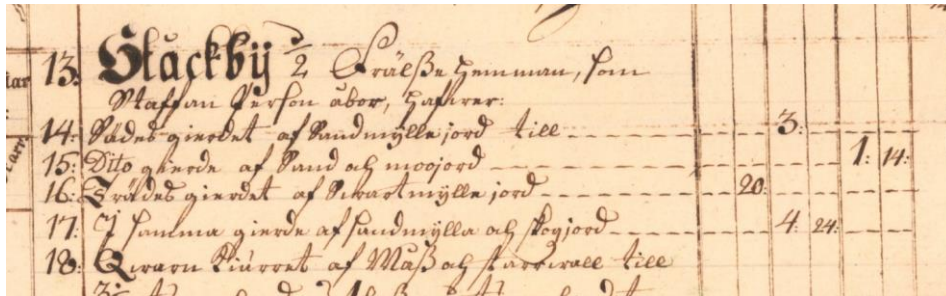 13. Stackbÿ 1/2 Frälße hemman, som
Staffan Person åbor, hafwer:
14: Sädes gierdet af Sandmÿlle jord till 3:
15: Dito gierde af Sand och moojord 1: 14:
16: Trädes gierdet af Swartmÿlle jord 20:
17: I samma gierde af sandmÿlla och skogjord 4: 24:
18: Qwarn Kiärret af Måß och starrwall till